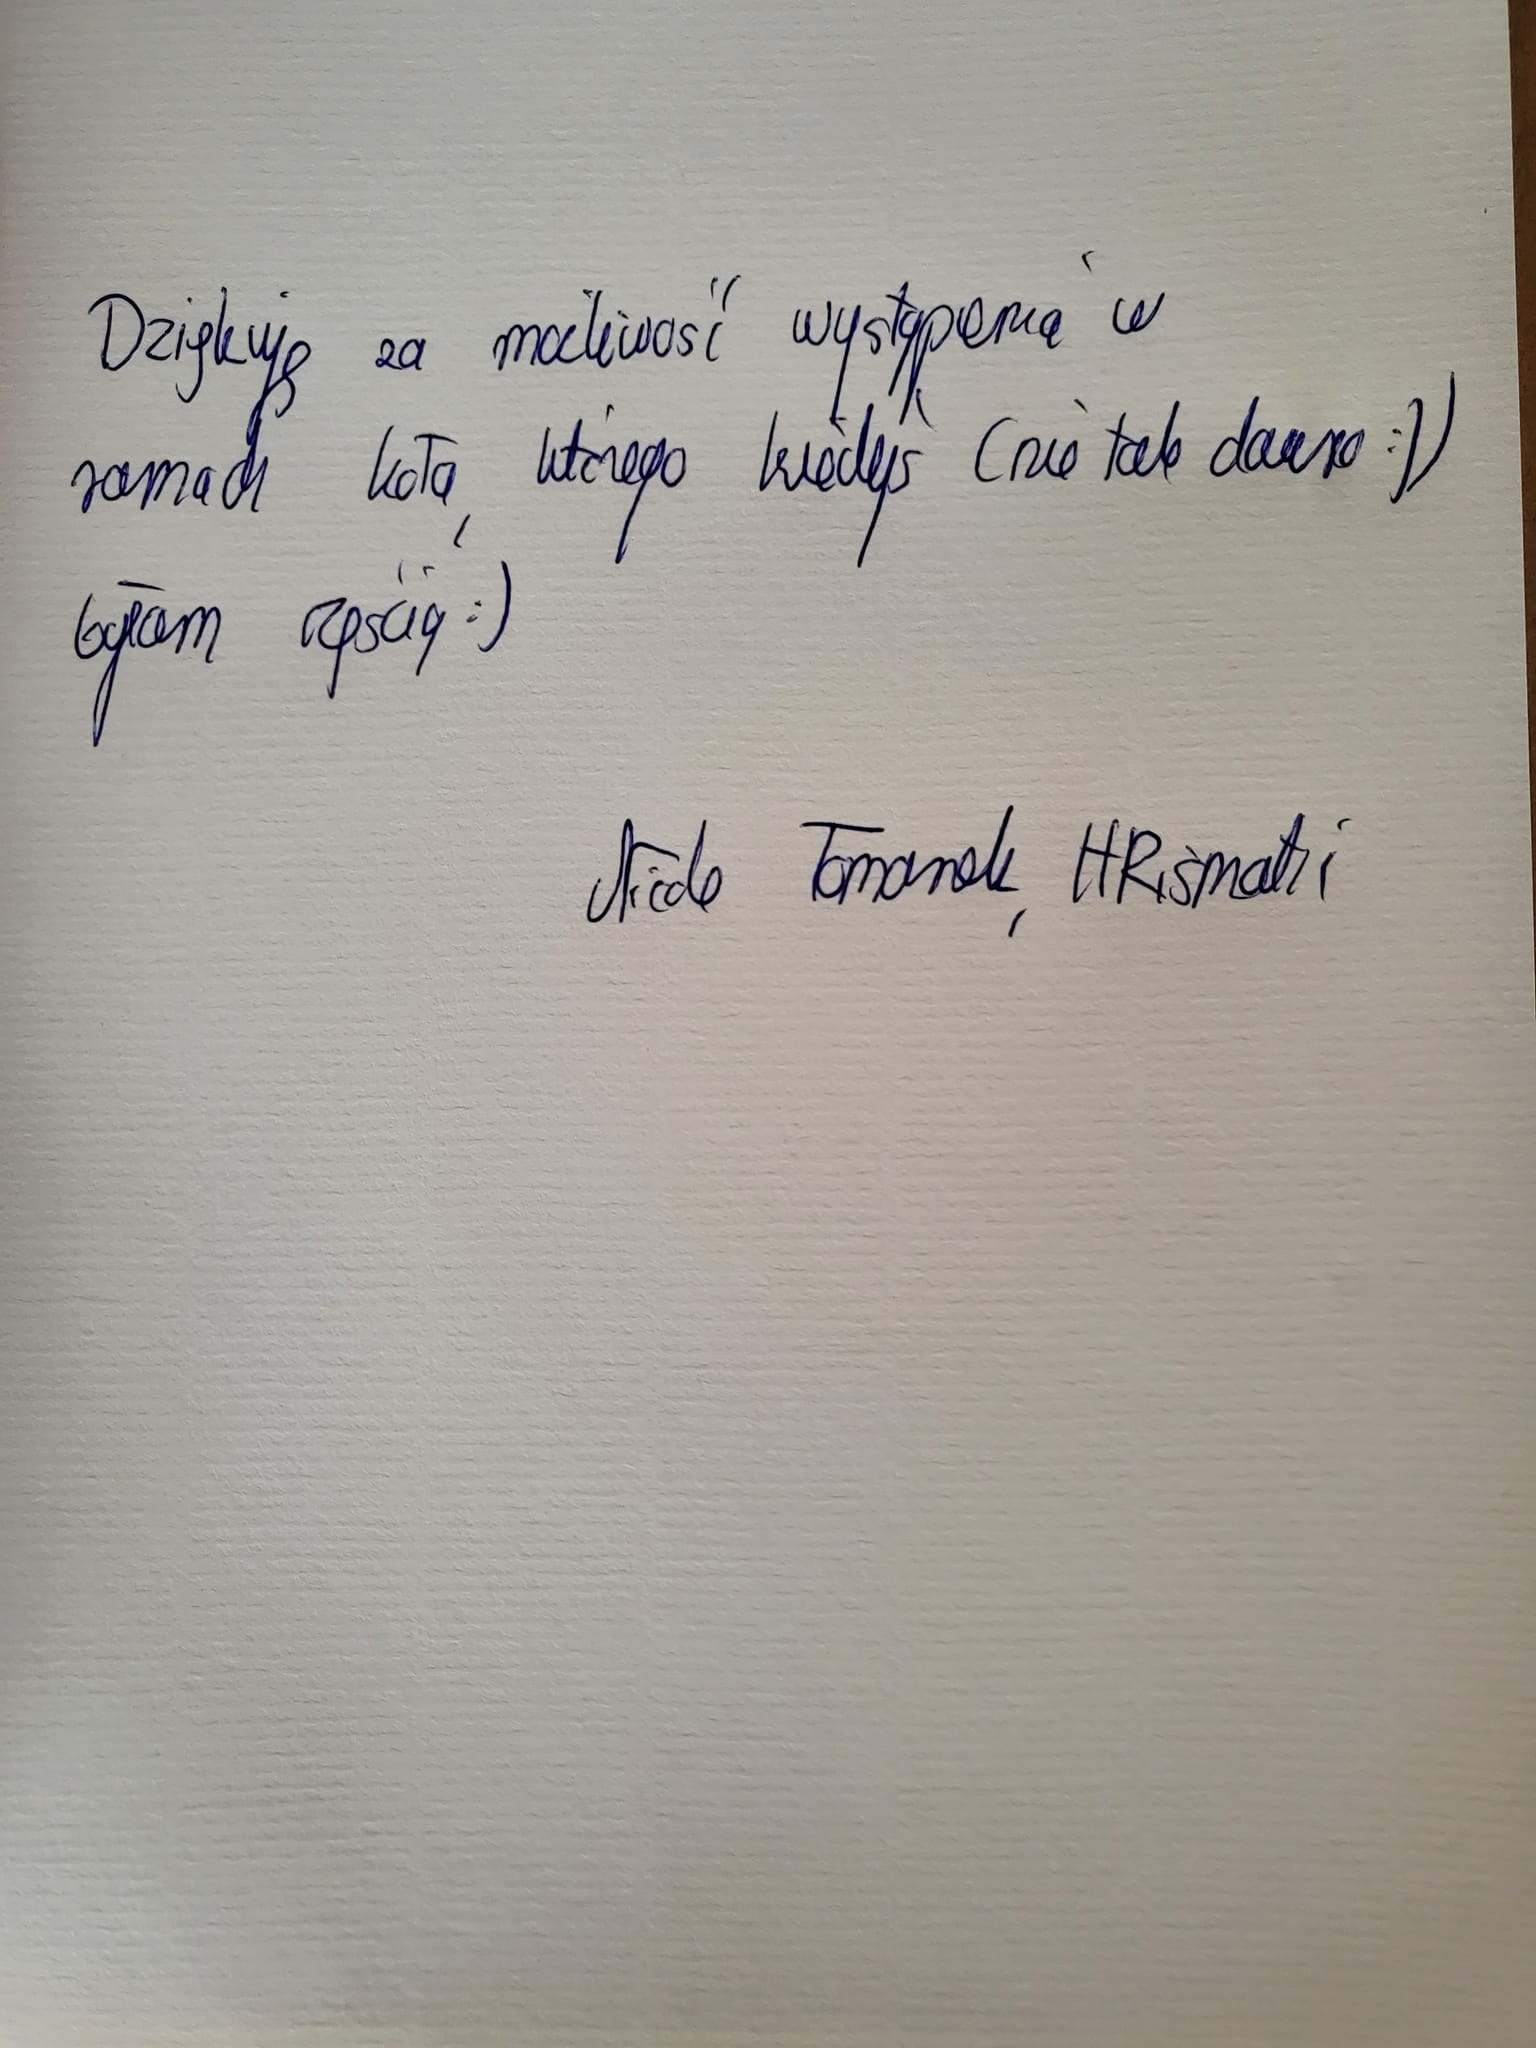 Dziękuję za możliwość wystąpienia w
ramach koła, którego kiedyś (nie tak dawno :))
byłam częścią :)
Nicole Tomanek, HRiśmatri